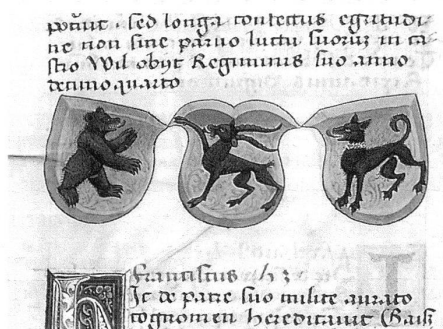 potuit. sed longa confectus egritudi
ne non sine paruo luctu suorum in ca
stro Wil obyt Regiminis suo anno
decimo quarto
Franciscus h 3
Ic de patre suo milite aurato
cognomen hereditauit